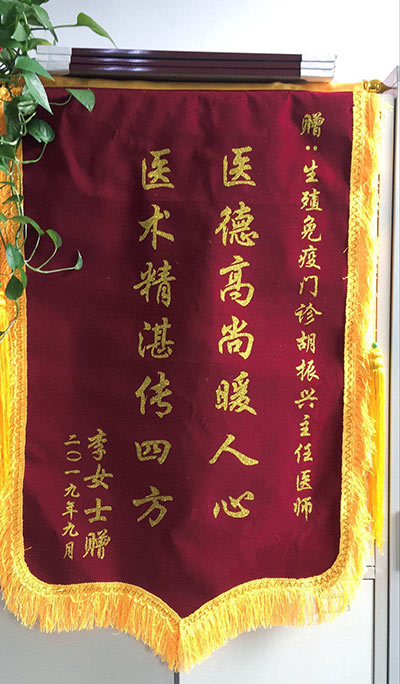 赠：生殖免疫门诊胡振兴主任医师
医德高尚暖人心
医术精湛传四方
李女士赠
二〇一九年九月